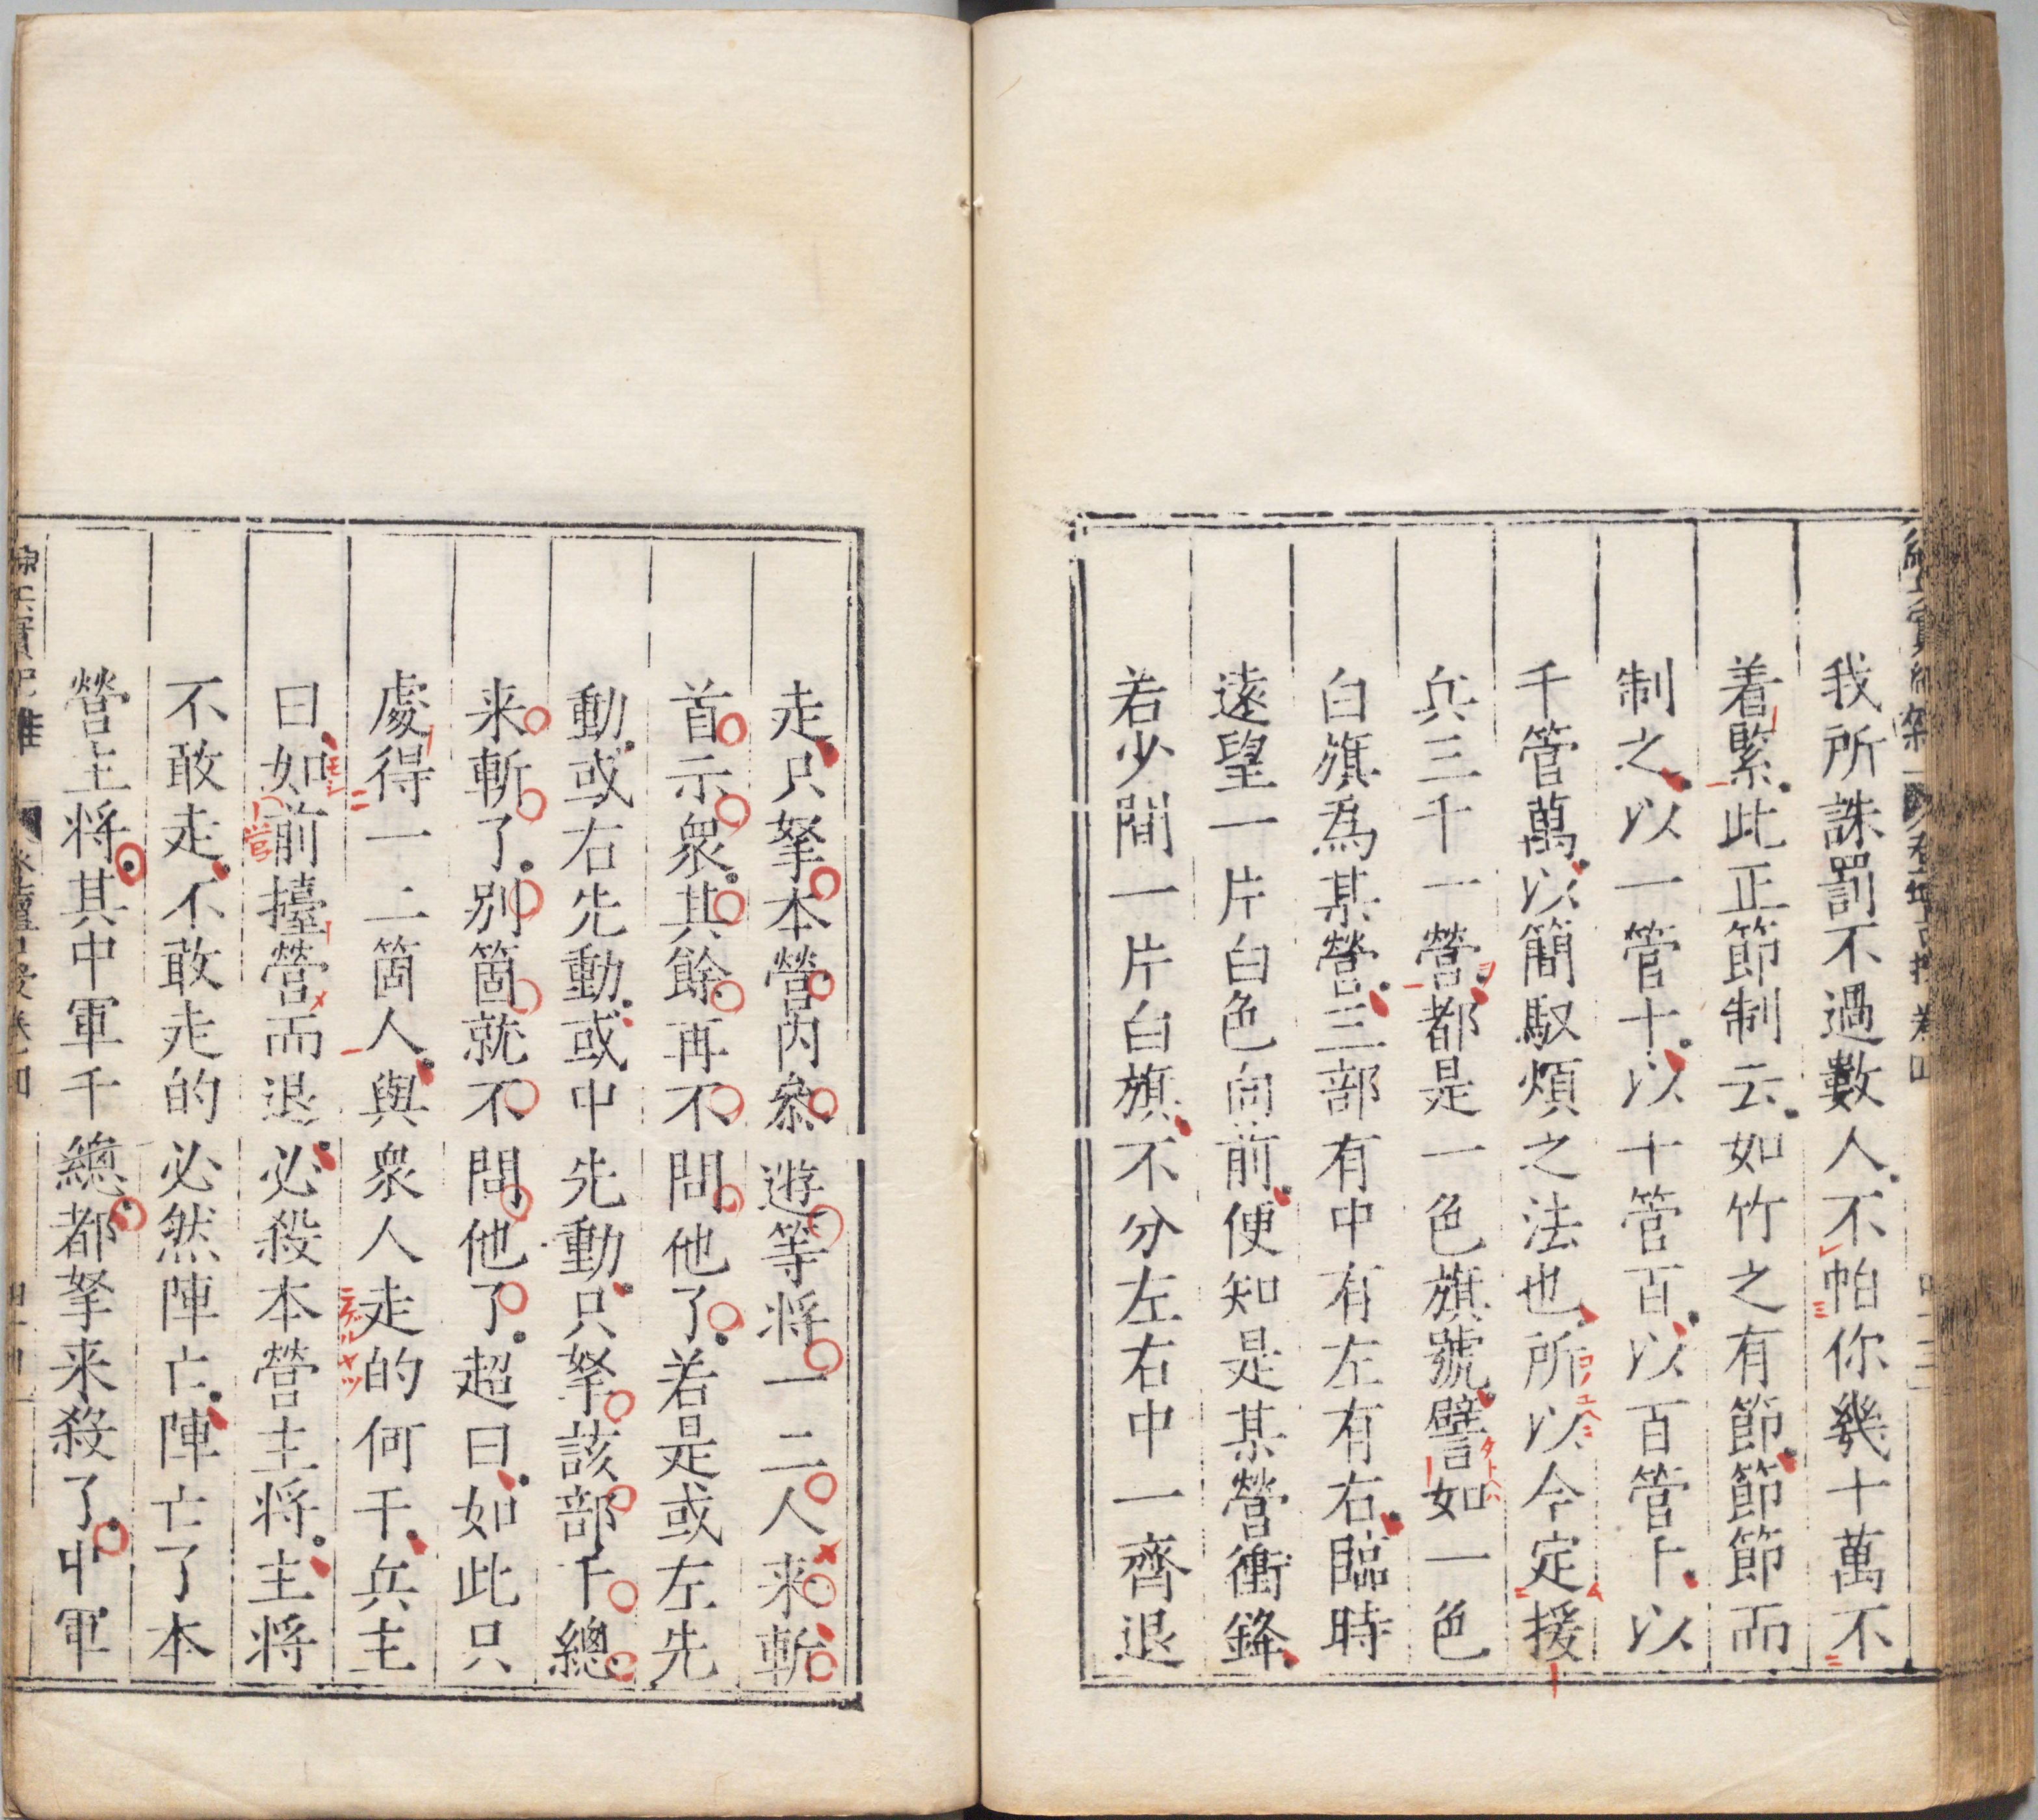 我所誅罰不過數人不帕你幾十萬不
着緊此正節制云如竹之有節節節而
制之以一管十以十管百以百管千以
千管萬以簡馭煩之法也所以今定援
兵三千一營都是一色旗號譬如一色
白旗為某營三部有中有左有右臨時
遠望一片白色向前便知是某營衝鋒
若少間一片白旗不分左右中一齊退
走只拏本營内叅遊等将一二人来斬
首示衆其餘再不問他了若是或左先
動或右先動或中先動只拏該部千總
来斬了別箇就不問他了超曰如此只
處得一二箇人與衆人走的何干兵主
曰如前擡營而退必殺本營主将主将
不敢走不敢走的必然陣亡陣亡了本
營主将其中軍千總都拏来殺了中軍